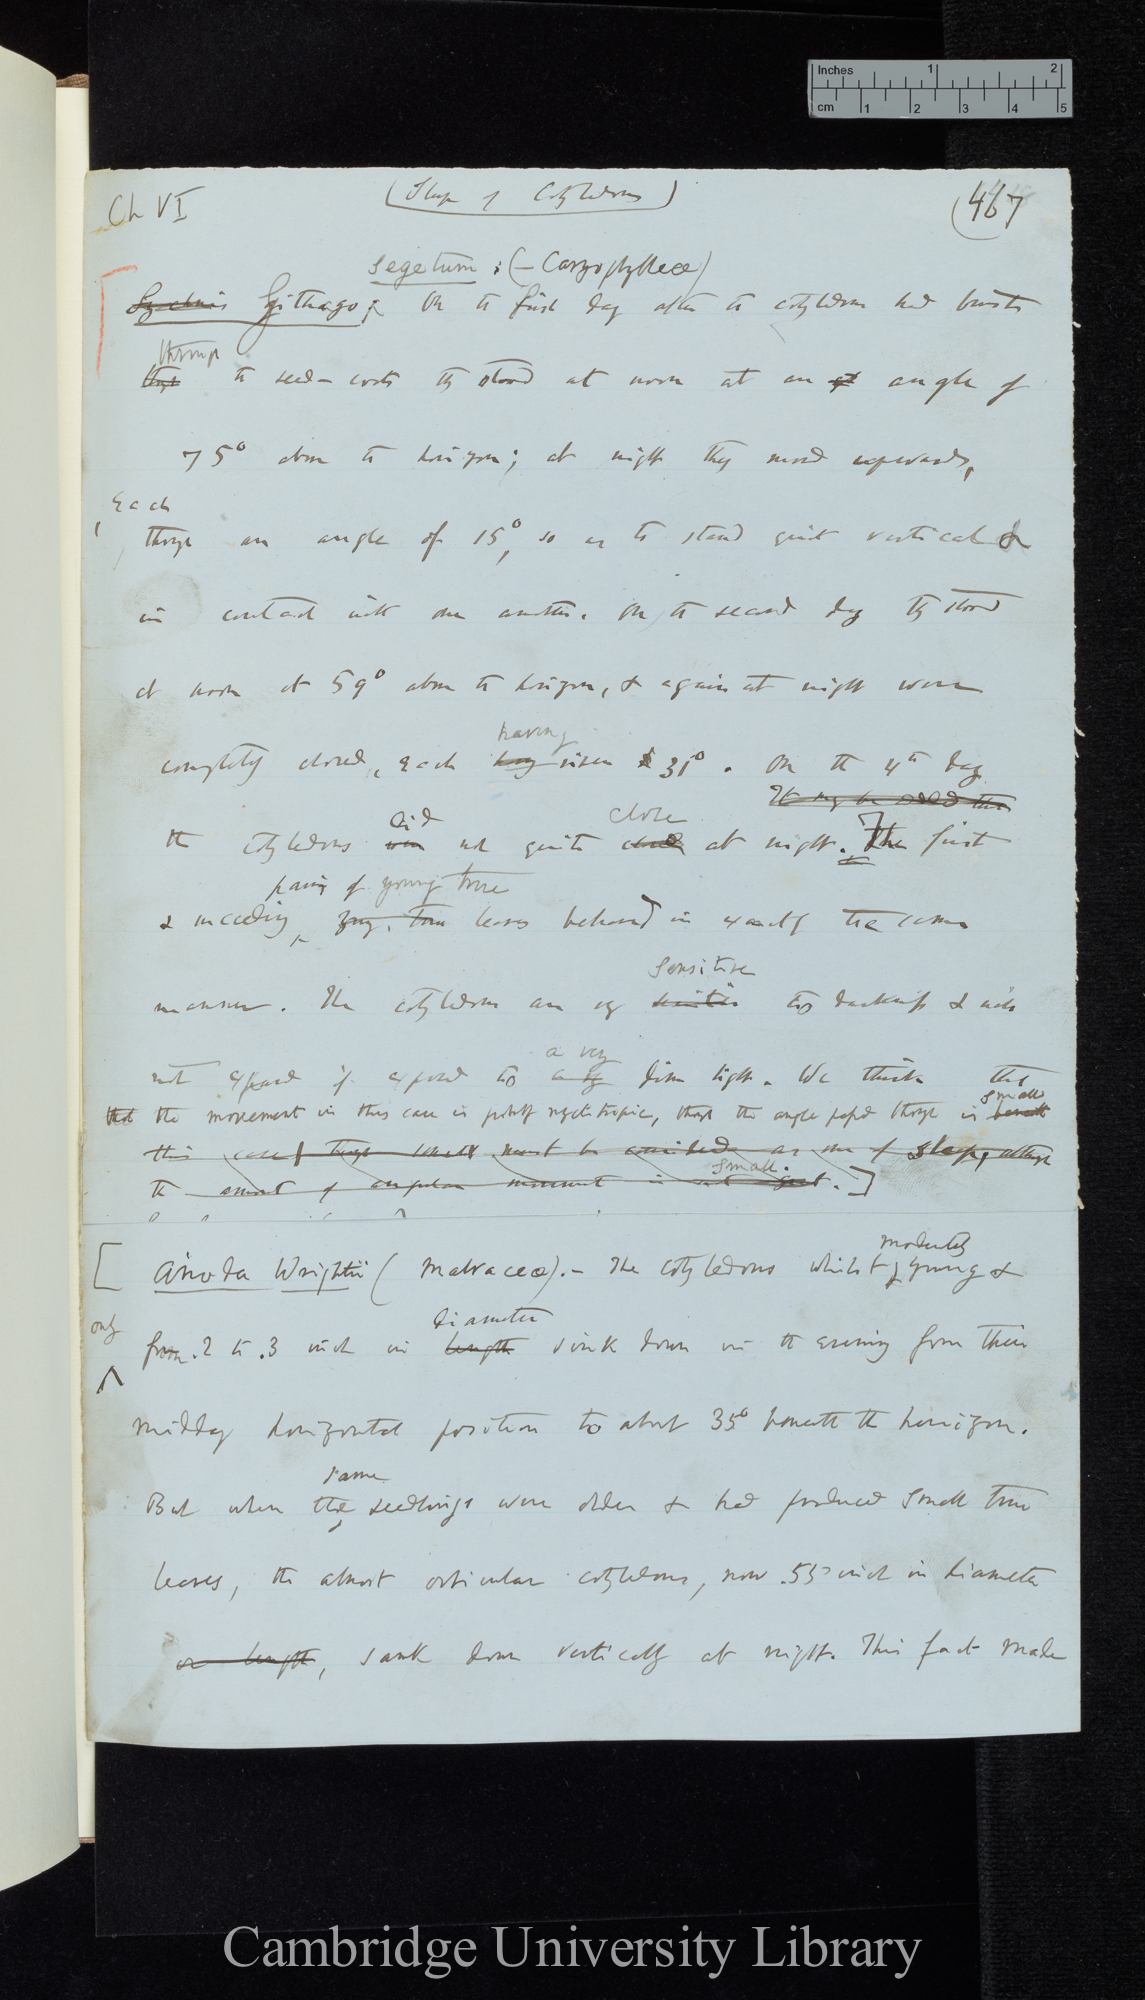 Inches 1 2
cm 1 2 3 4 5
Ch VI
(Sleep of Cotyledons)
(467
segetum : (— Caryophylleæ)
Lychnis Githago; On the first day after the cotyledons had burst
through
the seed-coats they stood at noon at an angle of
75° above the horizon; at night they moved upwards,
, each
through an angle of 15°, so as to stand quite vertical &
in contact with one another. On the second day they stood
at noon at 59° above the horizon, & again at night were
having
completely closed, each risen 31°. On the 4th day
It may be added that
did close
the cotyledons not quite at night. The first
pairs of young true
& succeeding young true leaves behaved in exactly the same
sensitive
manner. The cotyledons are to darkness & will
a very
not expand if exposed to dim light. We think that
small
that the movement in this case is nyctitropic, though the angle passed through is
this case though small must be considered as one of sleep, although
small.
the amount of angular movement is not great.]
moderately
[ Anoda Wrightii (Malvaceæ).— The cotyledons whilst young &
only diameter
from .2 to .3 inch in length sink down in the evening from their
midday horizontal position to about 35° beneath the horizon.
same
But when the seedlings were older & had produced small true
leaves, the almost orbicular cotyledons, now .55 inch in diameter
or length, sank down vertically at night. This fact made
Cambridge University Library